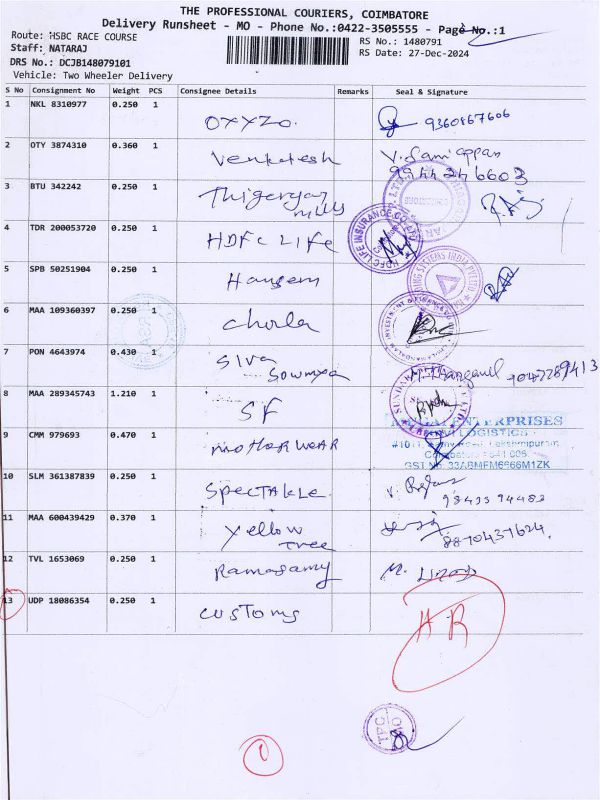 THE PROFESSIONAL COURIERS, COIMBATORE
Delivery Runsheet - MO - Phone No.:0422-3505555 - Page No.:1
Route: HSBC RACE COURSE
RS No.: 1480791
Staff: NATARAJ
RS Date: 27-Dec-2024
DRS No.: DCJB148079101
Vehicle: Two Wheeler Delivery
S No Consignment No Weight PCS Consignee Details Remarks Seal & Signature
1 NKL 8310977 0.250 1 OXYZO. 9360867606
2 OTY 3874310 0.360 1 Venkatesh V. Samiappan
9944246603
3 BTU 342242 0.250 1 mills
4 TDR 200053720 0.250 1 HDFC LIFE
HDFC LIFE INSURANCE CO LTD
5 SPB 50251904 0.250 1
SYSTEMS INDIA
6 MAA 109360397 0.250 1 Chola
CHOLAMANDALAM INVESTMENT & FINANCE
7 PON 4643974 0.430 1 Siva
Sowmya
8 MAA 289345743 1.210 1 SF
SUNDARAM
ENTERPRISES
LOGISTICS
9 CMM 979693 0.470 1 motherwear
Lakshmipuram
Coimbatore - 641 005
GST No: 33ABMFM6666M1ZK
10 SLM 361387839 0.250 1 Spectakle.
11 MAA 600439429 0.370 1 Yellow
Tree
8870437624.
12 TVL 1653069 0.250 1 Ramasamy
13 UDP 18086354 0.250 1 customs
TPC